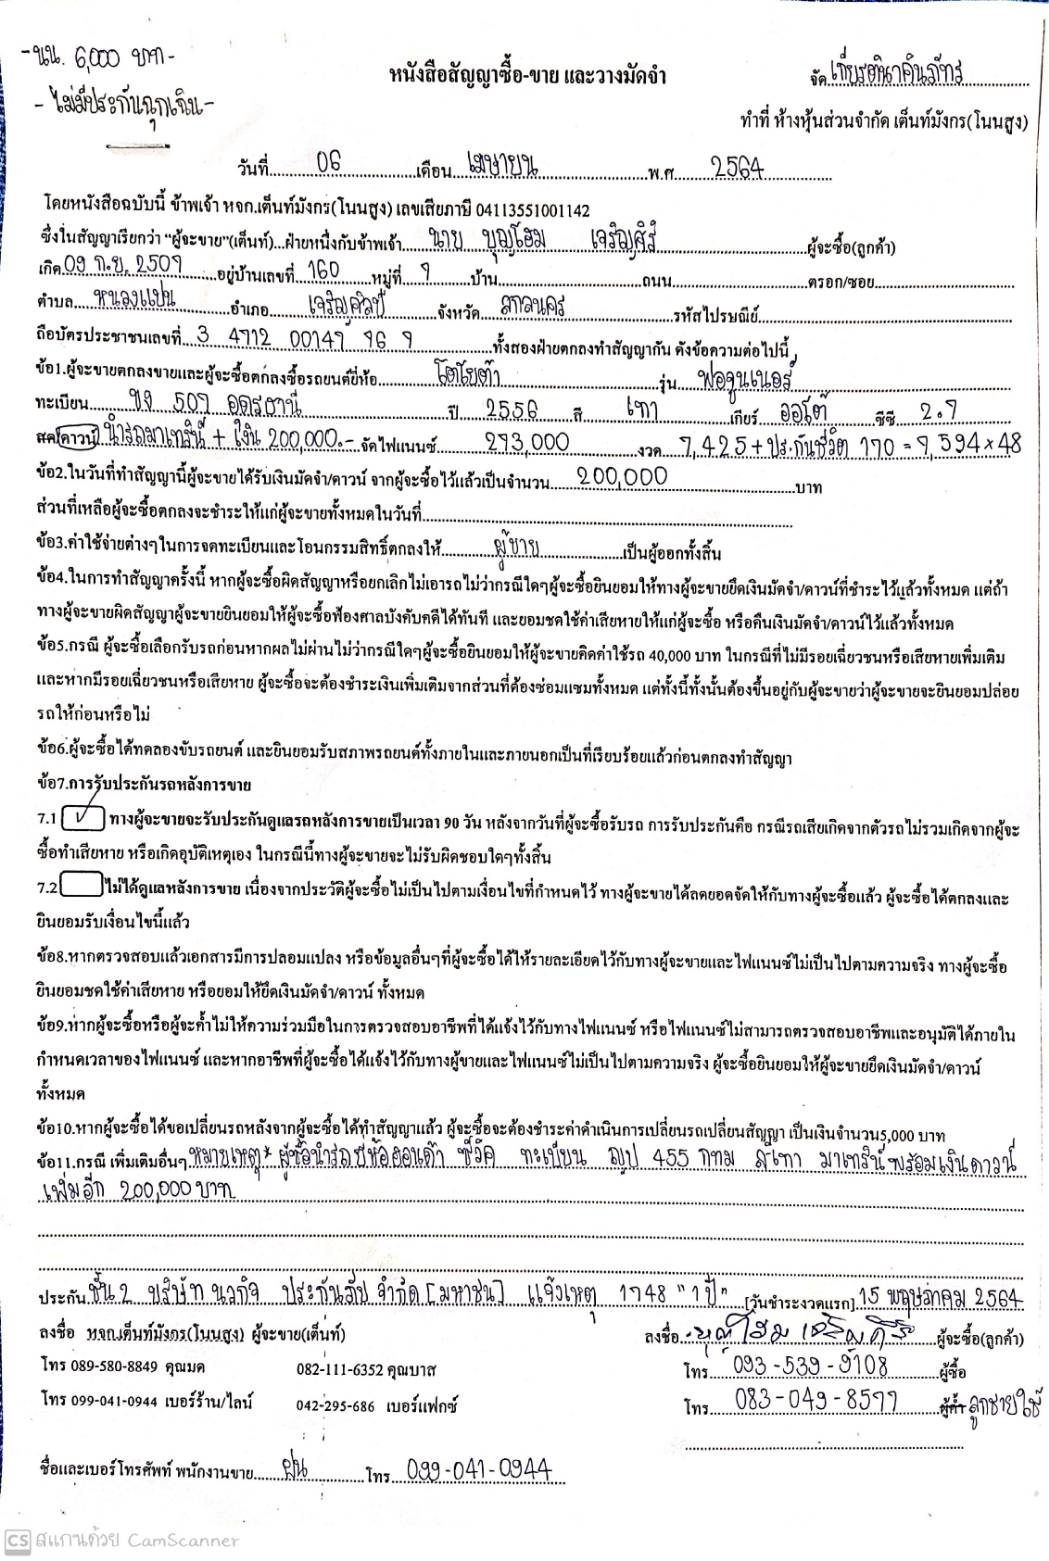 -นน. 6,000 บาท-
-ไม่มีประกันฉุกเฉิน-
หนังสือสัญญาซื้อ-ขาย และวางมัดจำ
จัด เกียรตินาคินภัทร
ทำที่ ห้างหุ้นส่วนจำกัด เต็นท์มังกร(โนนสูง)
วันที่ 06 เดือน เมษายน พ.ศ. 2564
โดยหนังสือฉบับนี้ ข้าพเจ้า หจก.เต็นท์มังกร(โนนสูง) เลขเสียภาษี 04113551001142
ซึ่งในสัญญาเรียกว่า "ผู้จะขาย"(เต็นท์)...ฝ่ายหนึ่งกับข้าพเจ้า นาย บุญโฮม เจริญศิริ ผู้จะซื้อ(ลูกค้า)
เกิด 09 ก.ย. 2507 อยู่บ้านเลขที่ 160 หมู่ที่ 7 บ้าน ถนน ตรอก/ซอย
ตำบล หนองแปน อำเภอ เจริญศิลป์ จังหวัด สกลนคร รหัสไปรษณีย์
ถือบัตรประชาชนเลขที่ 3 4712 00147 76 7 ทั้งสองฝ่ายตกลงทำสัญญากัน ดังข้อความต่อไปนี้
ข้อ1.ผู้จะขายตกลงขายและผู้จะซื้อตกลงซื้อรถยนต์ยี่ห้อ โตโยต้า รุ่น ฟอจูนเนอร์
ทะเบียน ขง 507 อุดรธานี ปี 2556 สี เทา เกียร์ ออโต้ ซีซี 2.7
สด/ดาวน์ นำรถมาเทริน์ + เงิน 200,000.- จัดไฟแนนซ์ 273,000 งวด 7,425+ประกันชีวิต 170 = 7,594 × 48
ข้อ2.ในวันที่ทำสัญญานี้ผู้จะขายได้รับเงินมัดจำ/ดาวน์ จากผู้จะซื้อไว้แล้วเป็นจำนวน 200,000 บาท
ส่วนที่เหลือผู้จะซื้อตกลงจะชำระให้แก่ผู้จะขายทั้งหมดในวันที่
ข้อ3.ค่าใช้จ่ายต่างๆในการจดทะเบียนและโอนกรรมสิทธิ์ตกลงให้ ผู้ขาย เป็นผู้ออกทั้งสิ้น
ข้อ4.ในการทำสัญญาครั้งนี้ หากผู้จะซื้อผิดสัญญาหรือยกเลิกไม่เอารถไม่ว่ากรณีใดๆผู้จะซื้อยินยอมให้ทางผู้จะขายยึดเงินมัดจำ/ดาวน์ที่ชำระไว้แล้วทั้งหมด แต่ถ้า
ทางผู้จะขายผิดสัญญาผู้จะขายยินยอมให้ผู้จะซื้อฟ้องศาลบังคับคดีได้ทันที และยอมชดใช้ค่าเสียหายให้แก่ผู้จะซื้อ หรือคืนเงินมัดจำ/ดาวน์ไว้แล้วทั้งหมด
ข้อ5.กรณี ผู้จะซื้อเลือกรับรถก่อนหากผลไม่ผ่านไม่ว่ากรณีใดๆผู้จะซื้อยินยอมให้ผู้จะขายคิดค่าใช้รถ 40,000 บาท ในกรณีที่ไม่มีรอยเฉี่ยวชนหรือเสียหายเพิ่มเติม
และหากมีรอยเฉี่ยวชนหรือเสียหาย ผู้จะซื้อจะต้องชำระเงินเพิ่มเติมจากส่วนที่ต้องซ่อมแซมทั้งหมด แต่ทั้งนี้ทั้งนั้นต้องขึ้นอยู่กับผู้จะขายว่าผู้จะขายจะยินยอมปล่อย
รถให้ก่อนหรือไม่
ข้อ6.ผู้จะซื้อได้ทดลองขับรถยนต์ และยินยอมรับสภาพรถยนต์ทั้งภายในและภายนอกเป็นที่เรียบร้อยแล้วก่อนตกลงทำสัญญา
ข้อ7.การรับประกันรถหลังการขาย
7.1 ✓ ทางผู้จะขายจะรับประกันดูแลรถหลังการขายเป็นเวลา 90 วัน หลังจากวันที่ผู้จะซื้อรับรถ การรับประกันคือ กรณีรถเสียเกิดจากตัวรถไม่รวมเกิดจากผู้จะ
ซื้อทำเสียหาย หรือเกิดอุบัติเหตุเอง ในกรณีนี้ทางผู้จะขายจะไม่รับผิดชอบใดๆทั้งสิ้น
7.2 ไม่ได้ดูแลหลังการขาย เนื่องจากประวัติผู้จะซื้อไม่เป็นไปตามเงื่อนไขที่กำหนดไว้ ทางผู้จะขายได้ลดยอดจัดให้กับทางผู้จะซื้อแล้ว ผู้จะซื้อได้ตกลงและ
ยินยอมรับเงื่อนไขนี้แล้ว
ข้อ8.หากตรวจสอบแล้วเอกสารมีการปลอมแปลง หรือข้อมูลอื่นๆที่ผู้จะซื้อได้ให้รายละเอียดไว้กับทางผู้จะขายและไฟแนนซ์ไม่เป็นไปตามความจริง ทางผู้จะซื้อ
ยินยอมชดใช้ค่าเสียหาย หรือยอมให้ยึดเงินมัดจำ/ดาวน์ ทั้งหมด
ข้อ9.หากผู้จะซื้อหรือผู้จะค้ำไม่ให้ความร่วมมือในการตรวจสอบอาชีพที่ได้แจ้งไว้กับทางไฟแนนซ์ หรือไฟแนนซ์ไม่สามารถตรวจสอบอาชีพและอนุมัติได้ภายใน
กำหนดเวลาของไฟแนนซ์ และหากอาชีพที่ผู้จะซื้อได้แจ้งไว้กับทางผู้ขายและไฟแนนซ์ไม่เป็นไปตามความจริง ผู้จะซื้อยินยอมให้ผู้จะขายยึดเงินมัดจำ/ดาวน์
ทั้งหมด
ข้อ10.หากผู้จะซื้อได้ขอเปลี่ยนรถหลังจากผู้จะซื้อได้ทำสัญญาแล้ว ผู้จะซื้อจะต้องชำระค่าดำเนินการเปลี่ยนรถเปลี่ยนสัญญา เป็นเงินจำนวน5,000 บาท
ข้อ11.กรณี เพิ่มเติมอื่นๆ หมายเหตุ* ผู้ซื้อนำรถยี่ห้อฮอนด้า ซีวิค ทะเบียน ญบ 455 กทม สีเทา มาเทริน์ พร้อมเงินดาวน์
เพิ่มอีก 200,000 บาท
ประกัน ชั้น 2 บริษัท นวกิจ ประกันภัย จำกัด [มหาชน] แจ้งเหตุ 1748 "1 ปี" [วันชำระงวดแรก] 15 พฤษภาคม 2564
ลงชื่อ หจก.เต็นท์มังกร(โนนสูง) ผู้จะขาย(เต็นท์) ลงชื่อ บุญโฮม เจริญศิริ ผู้จะซื้อ(ลูกค้า)
โทร 089-580-8849 คุณมด 082-111-6352 คุณบาส โทร 093-539-9108 ผู้ซื้อ
โทร 099-041-0944 เบอร์ร้าน/ไลน์ 042-295-686 เบอร์แฟกซ์ โทร 083-049-8577 ผู้ค้ำ ลูกชายใช้
ชื่อและเบอร์โทรศัพท์ พนักงานขาย ฝน โทร 099-041-0944
CS สแกนด้วย CamScanner